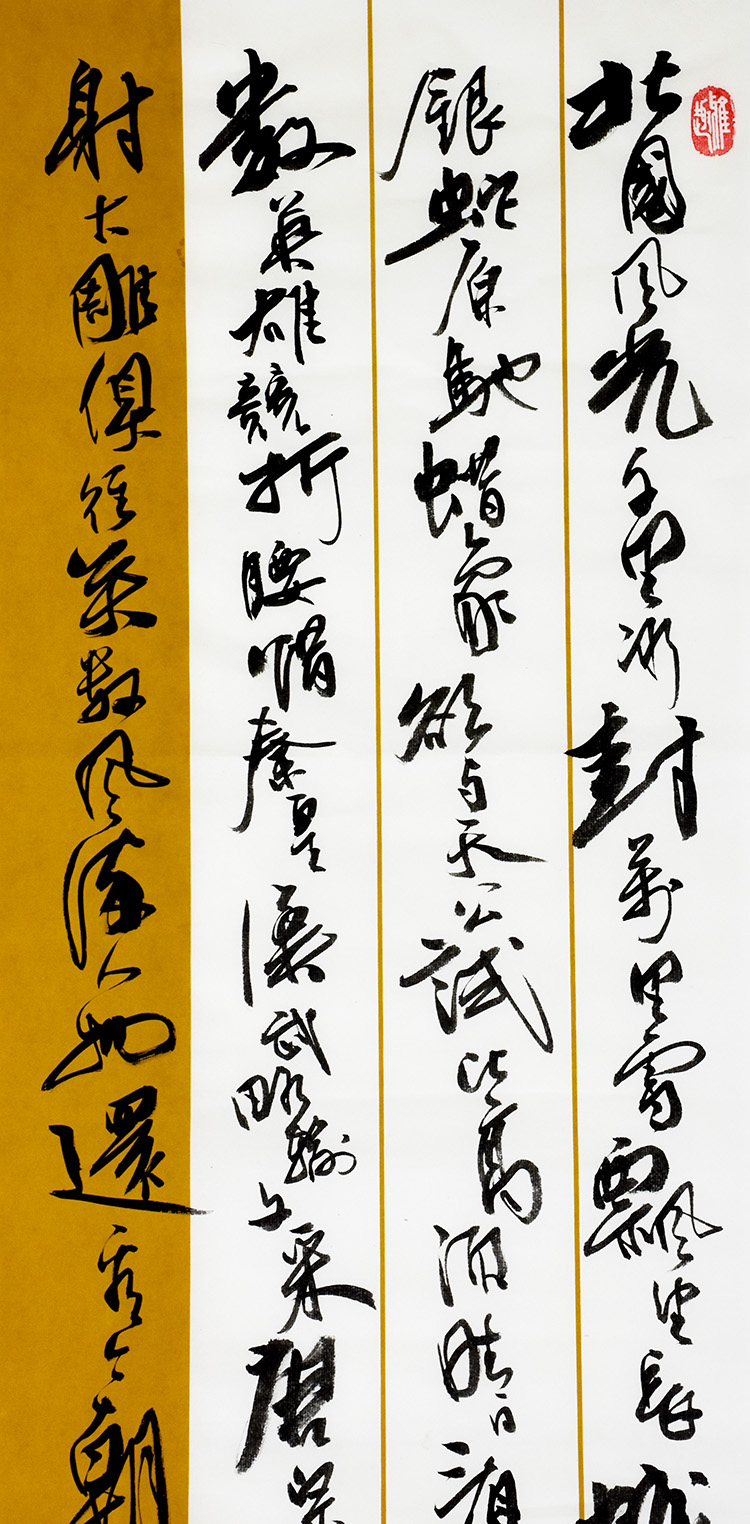 北國风光千里冰封萬里雪飄望長城
銀蛇原馳蜡象欲与天公試比高須晴日
數英雄競折腰惜秦皇漢武略輸文采唐宗
射大雕俱往矣数风流人物還看今朝